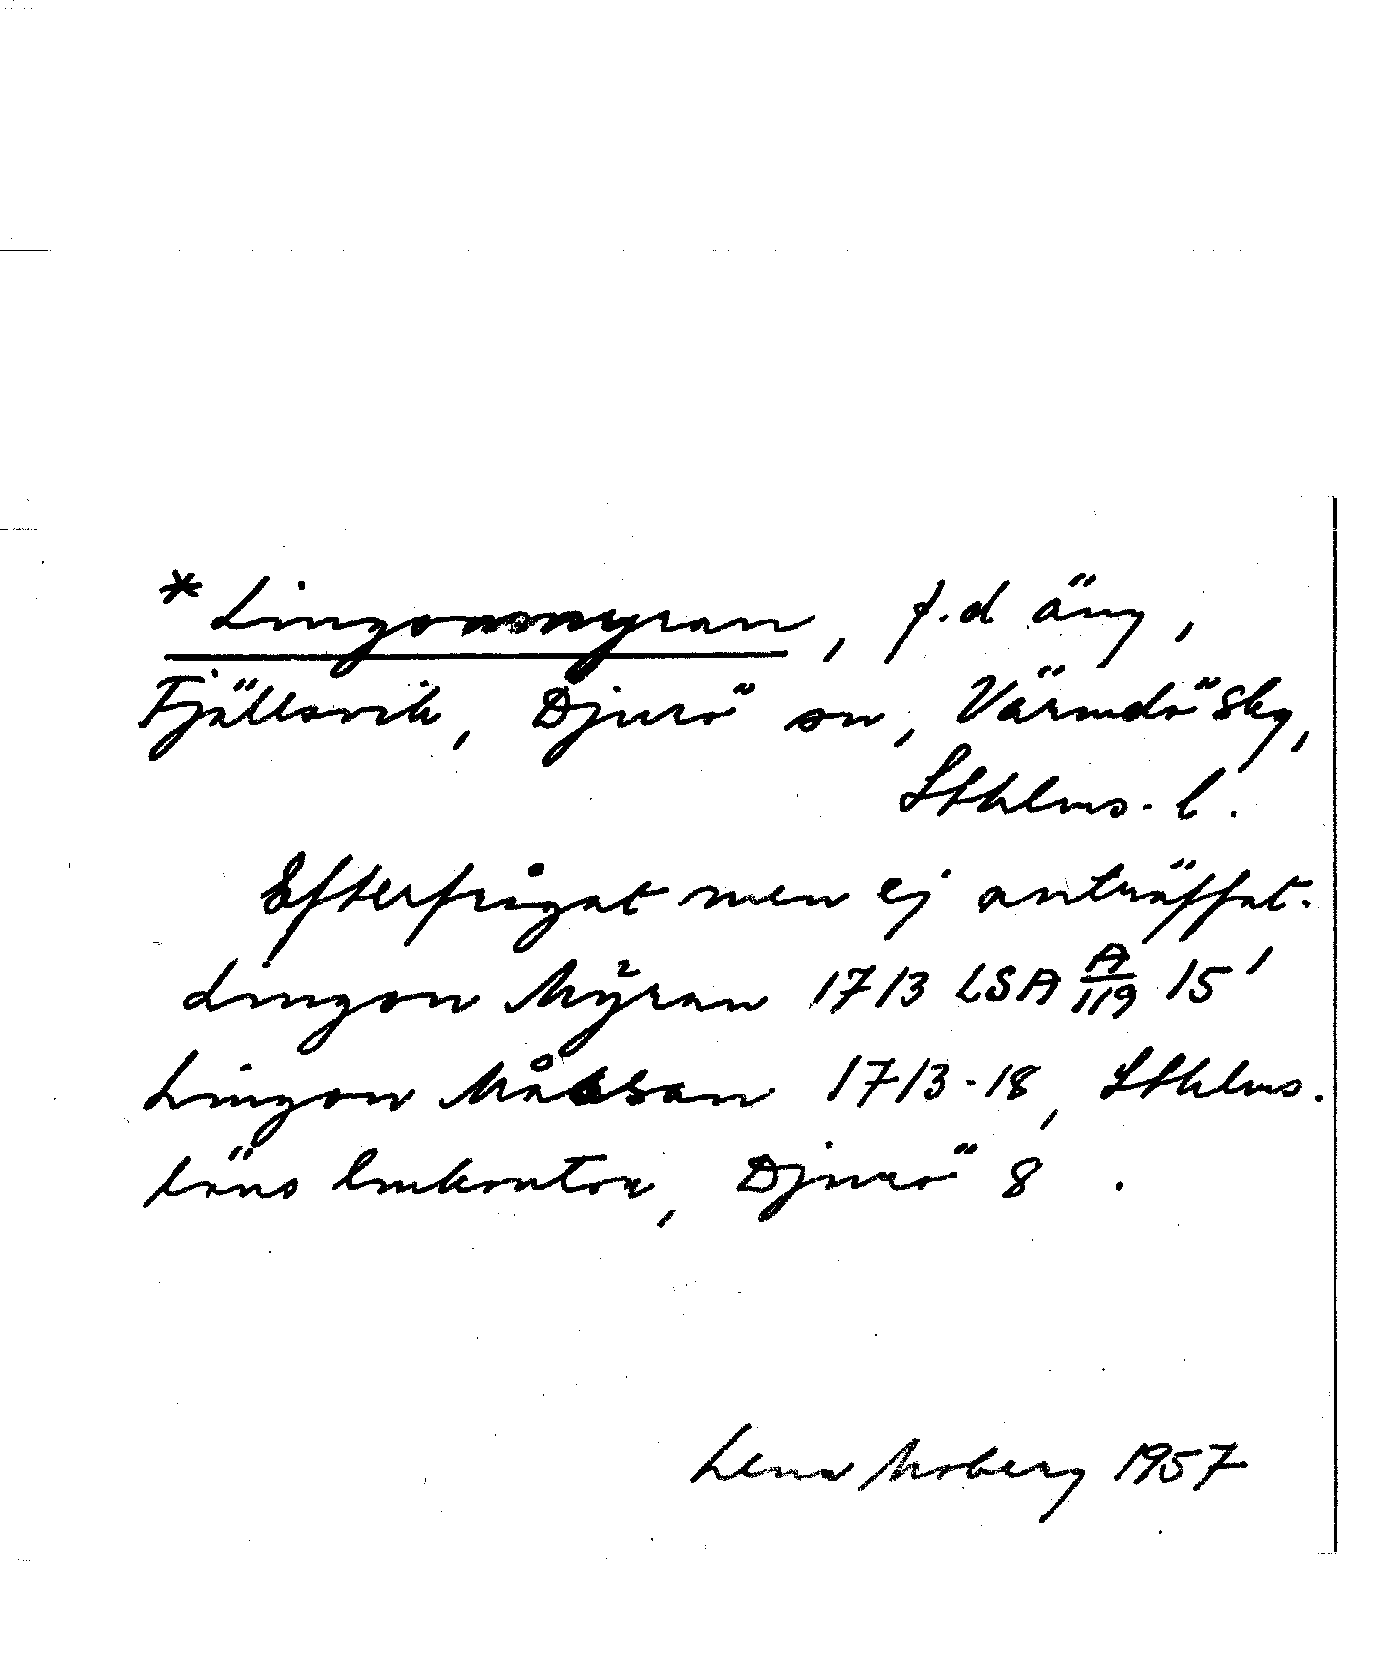 *Lingonmyran, f.d äng,
Fjällsvik, Djurö sn, Värmdö Skg,
Sthlms. l.
Efterfrågat men ej anträffat.
Lingon Mÿran 1713 LSA A/119 15'
Lingon Måssan 1713-18, Sthlms.
läns lmkontor, Djurö 8.
Lena Moberg 1957